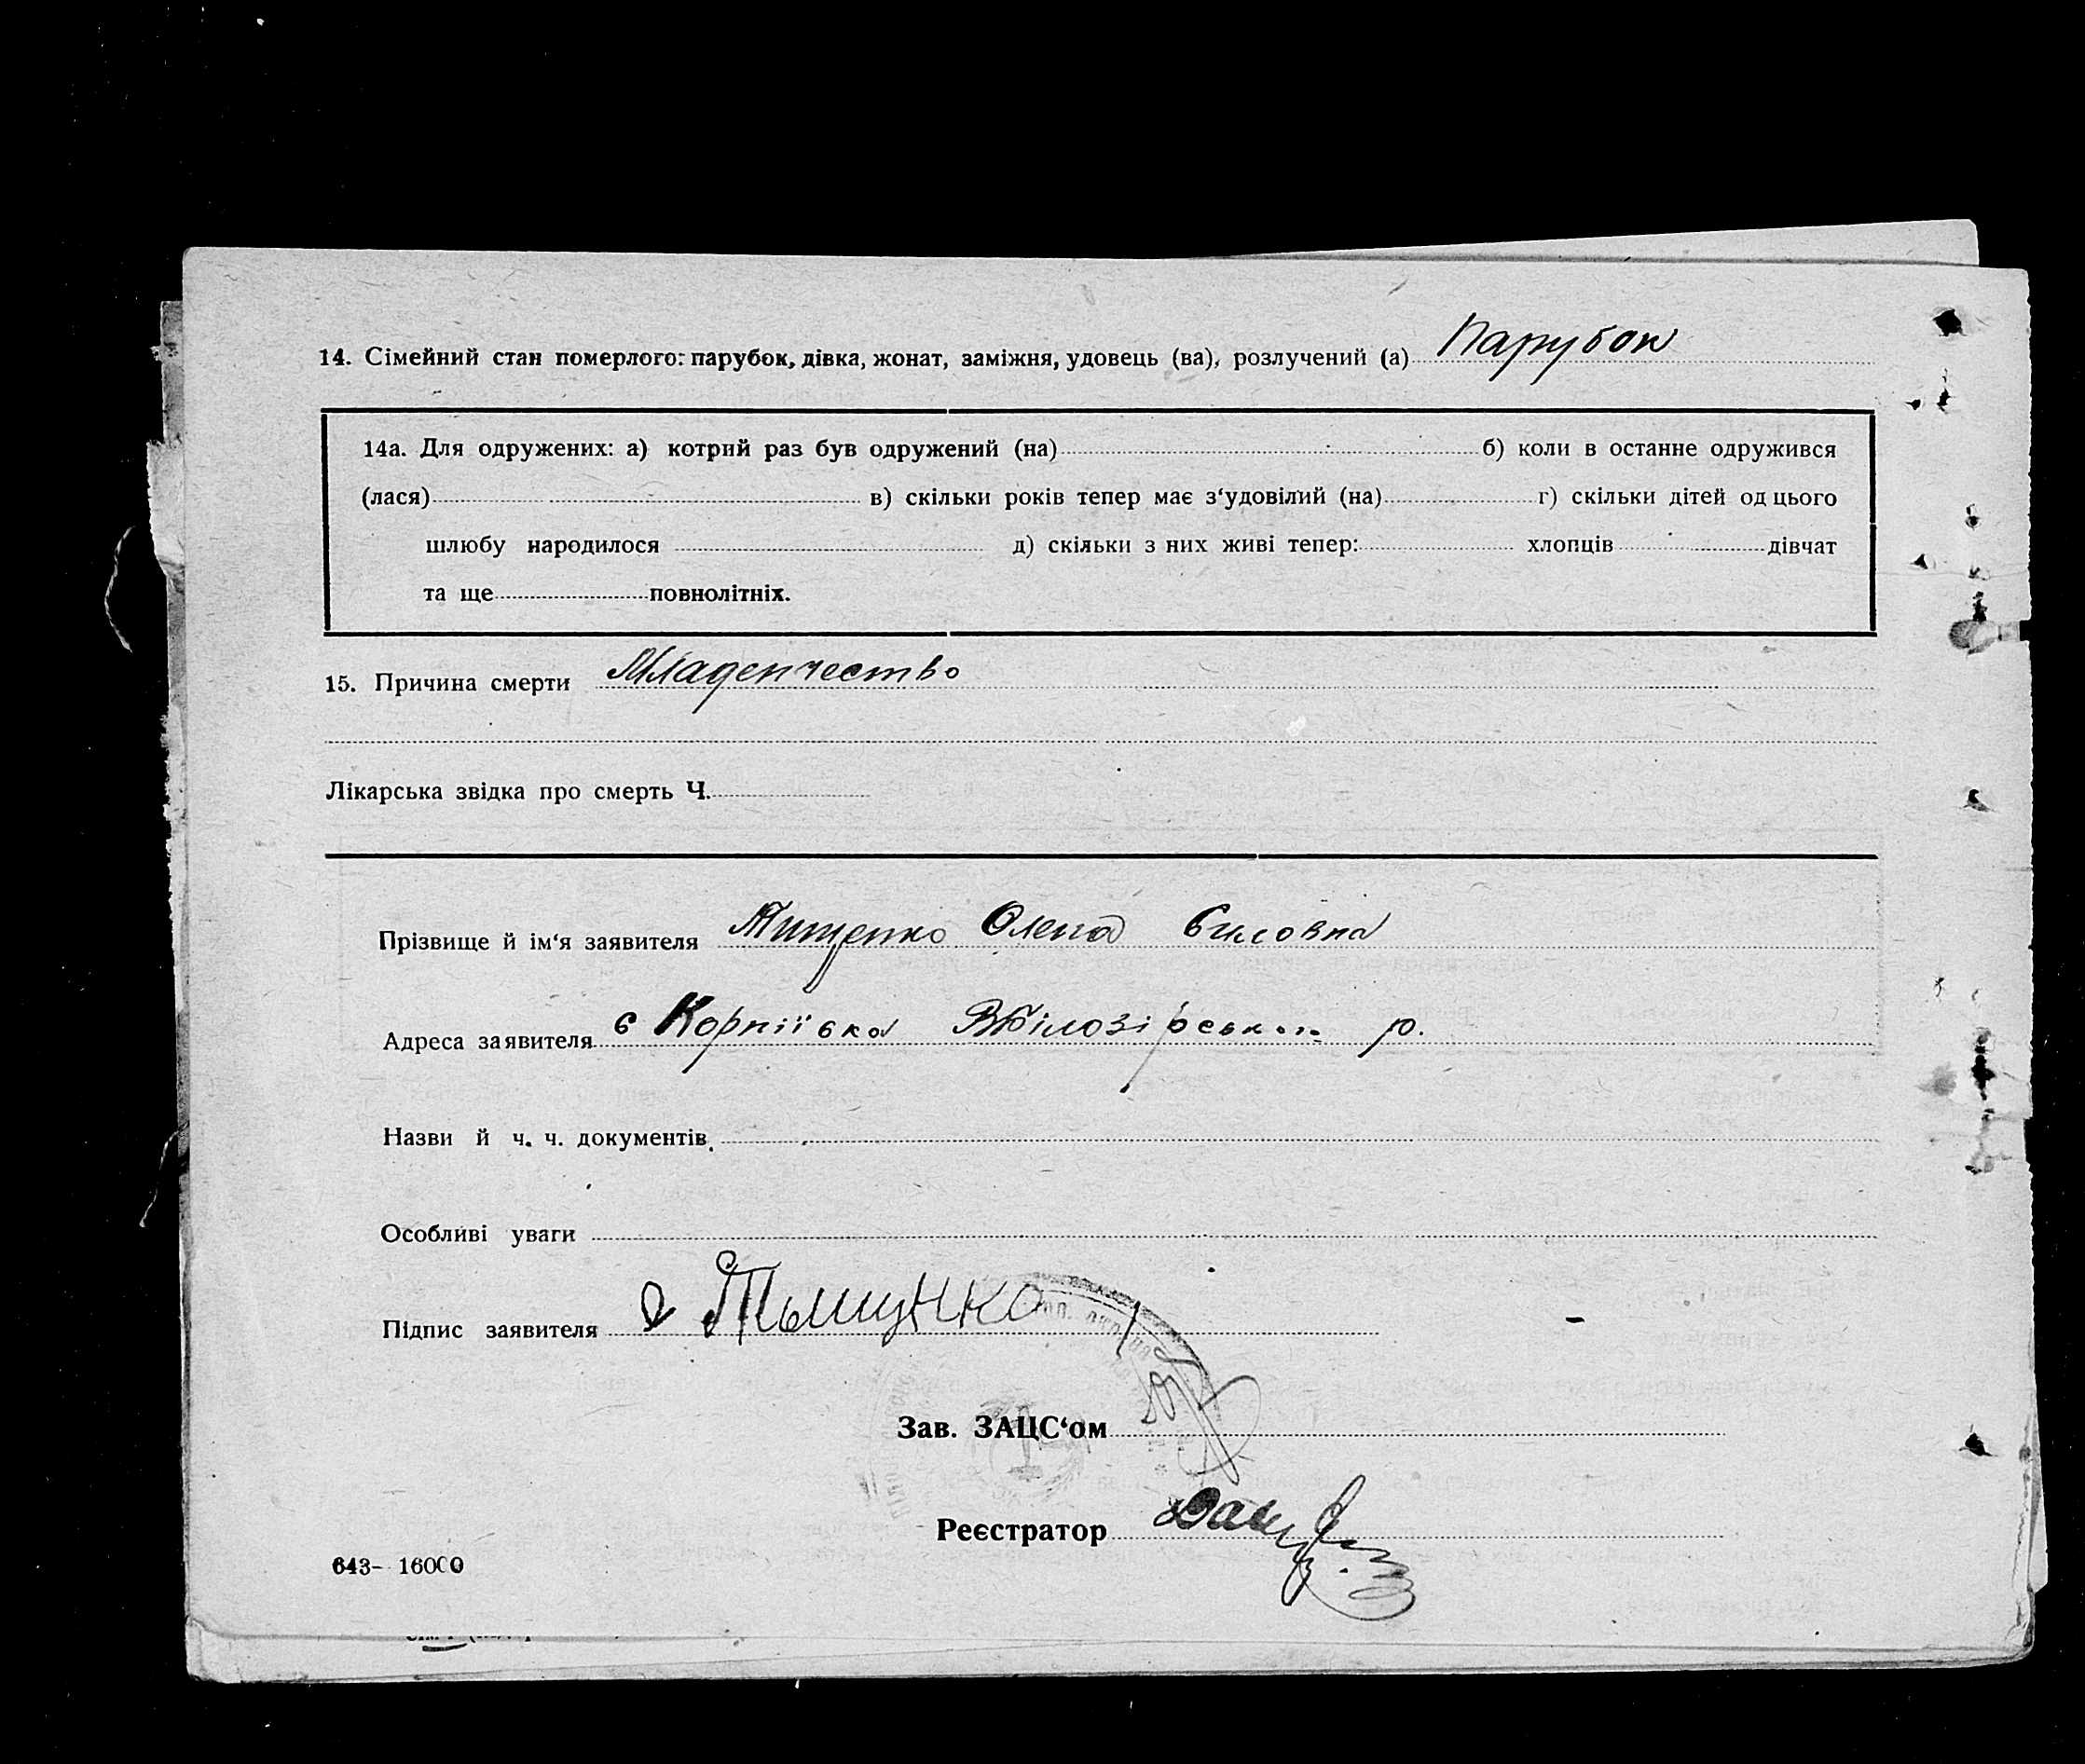 14. Сімейний стан померлого: парубок, дівка, жонат, заміжня, удовець (ва), розлучений (а) Парубок
14а. Для одружених: а) котрий раз був одружений (на) б) коли в останне одружився
(лася) в) скільки років тепер має з‘удовілий (на) г) скільки дітей од цього
шлюбу народилося д) скільки з них живі тепер: хлопців дівчат
та ще повнолітніх.
15. Причина смерти Младенчество
Лікарська звідка про смерть Ч.
Прізвище й ім‘я заявителя Тищенко Олена
Адреса заявителя р.
Назви й ч. ч. документів.
Особливі уваги
Підпис заявителя
Зав. ЗАЦС‘ом
Реєстратор
643- 16000